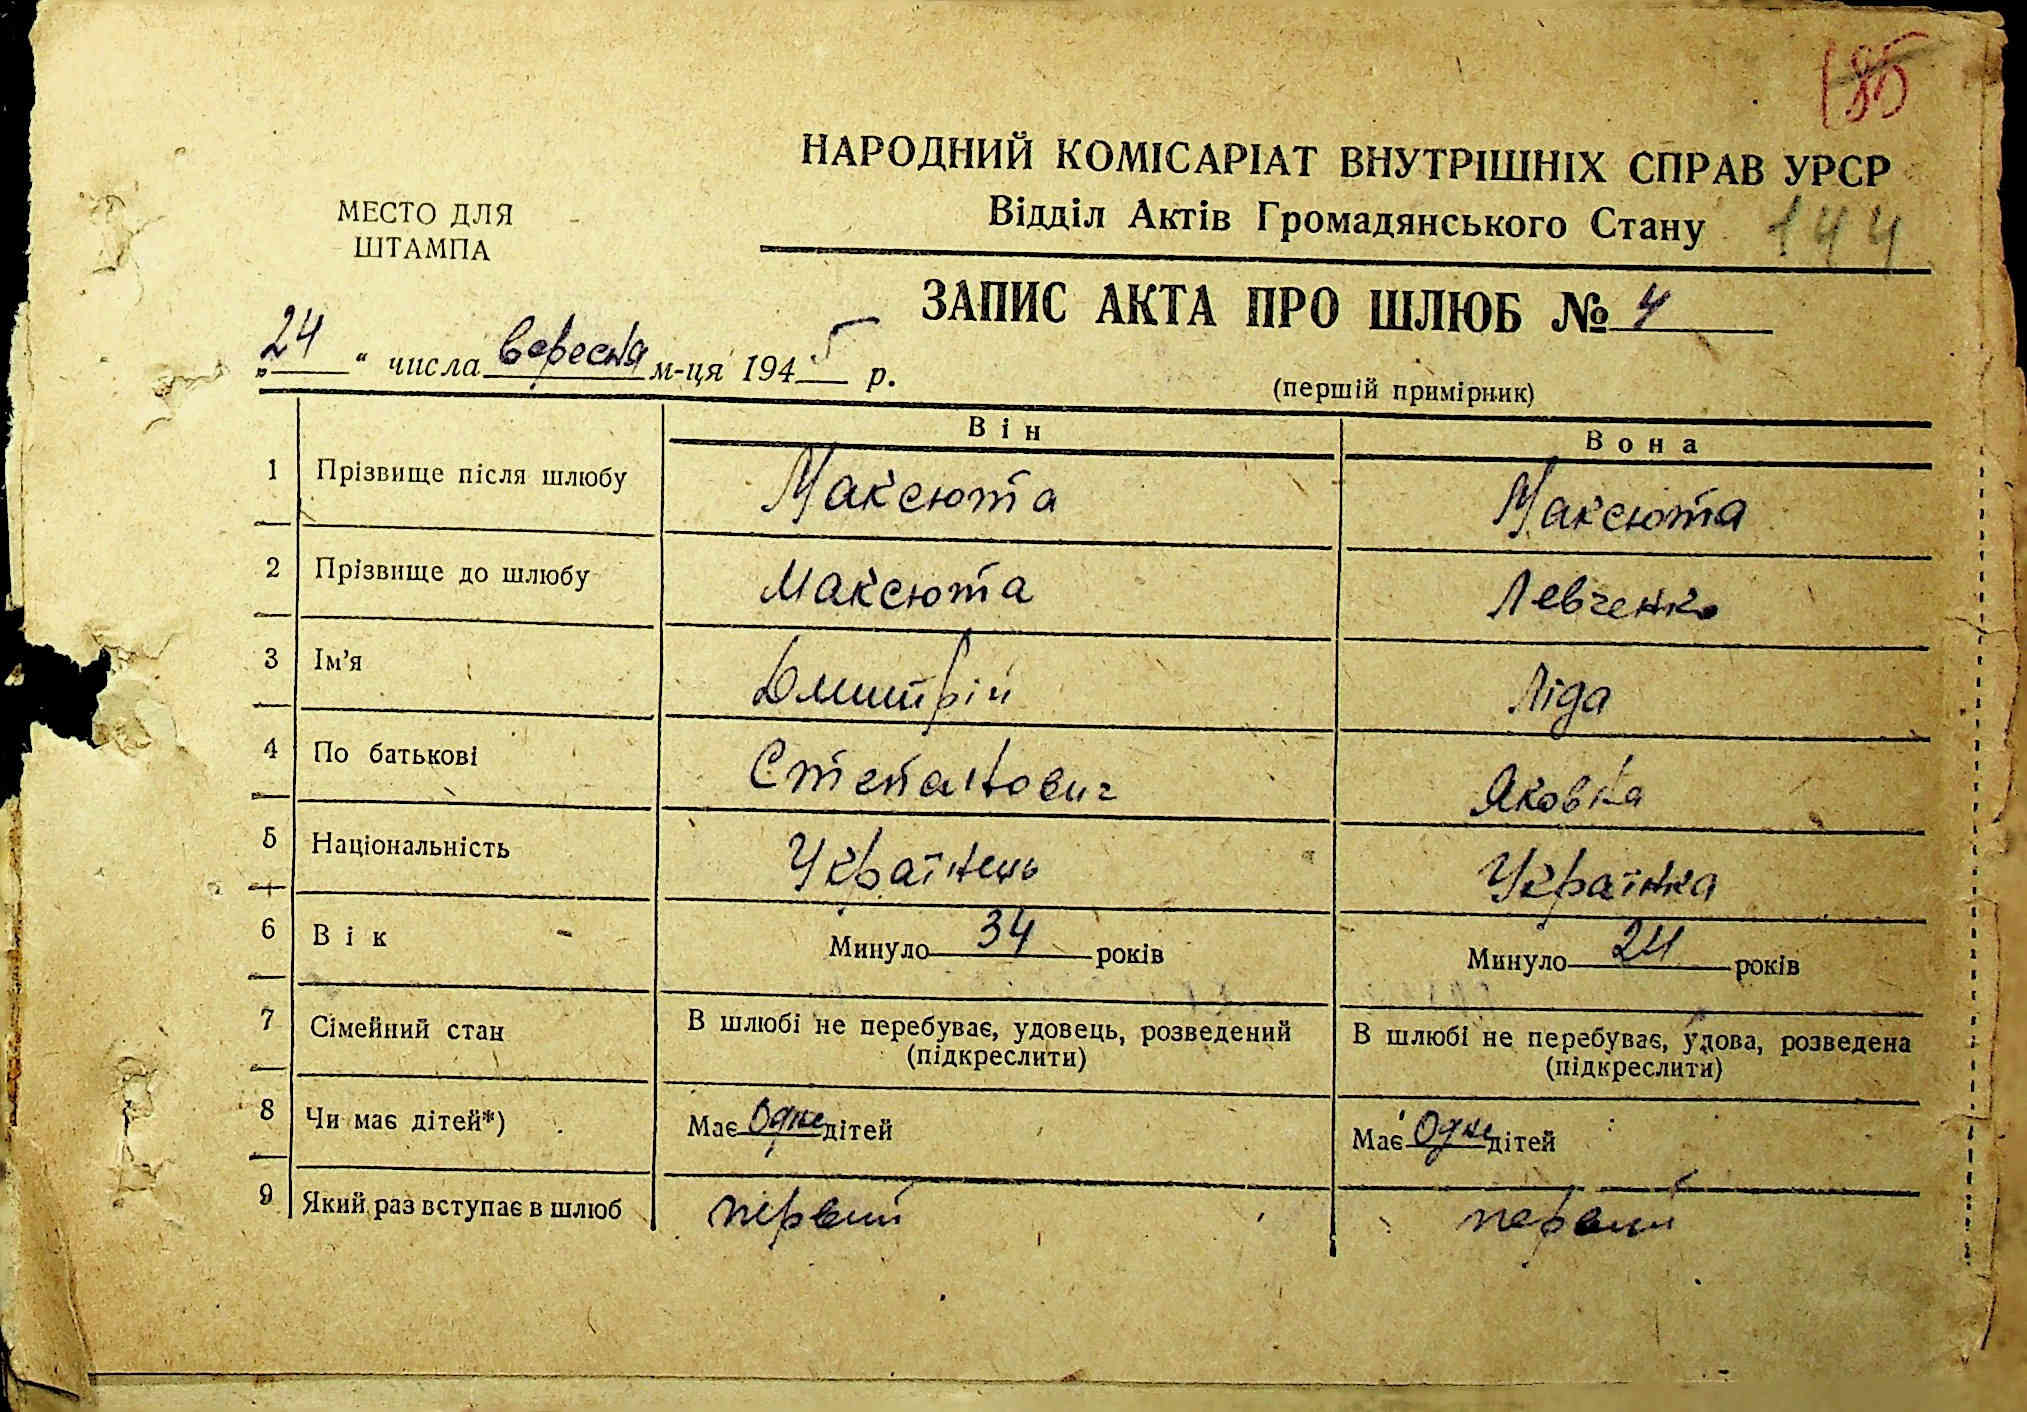 185
НАРОДНИЙ КОМІСАРІАТ ВНУТРІШНІХ СПРАВ УРСР
МЕСТО ДЛЯ
ШТАМПА
Відділ Актів Громадянського Стану 144
ЗАПИС АКТА ПРО ШЛЮБ № 4
„24“ числа вересня м-ця 1945 р.
(першій примірник)
Він Вона
1 Прізвище після шлюбу Максюта Максюта
2 Прізвище до шлюбу Максюта Левченко
3 Ім’я Дмитрій Ліда
4 По батькові Степанович Яковна
5 Національність Українець Українка
6 Вік Минуло 34 років Минуло 24 років
7 Сімейний стан В шлюбі не перебуває, удовець, розведений В шлюбі не перебуває, удова, розведена
(підкреслити) (підкреслити)
8 Чи має дітей*) Має Одне дітей Має Одне дітей
9 Який раз вступає в шлюб первий первий